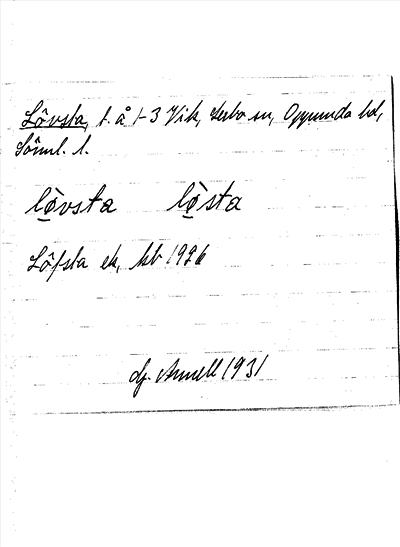 Lövsta, t. å 1-3 Vik, Lerbo sn, Oppunda hd,
Söml. l.
lövsta lösta
Löfsta ek, kb 1926
Annell 1931